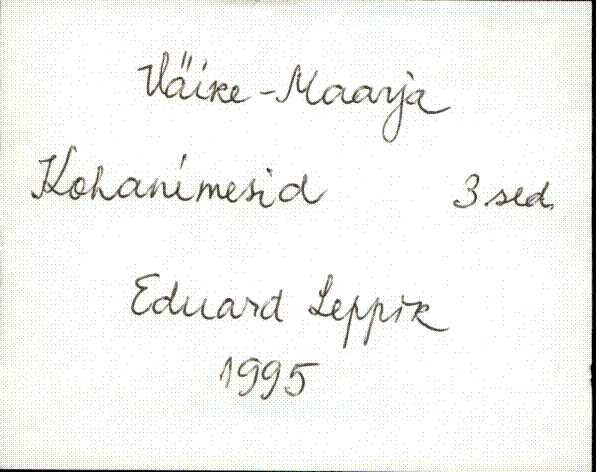 Väike-Maarja
Kohanimesid 3 sed.
Eduard Leppik
1995